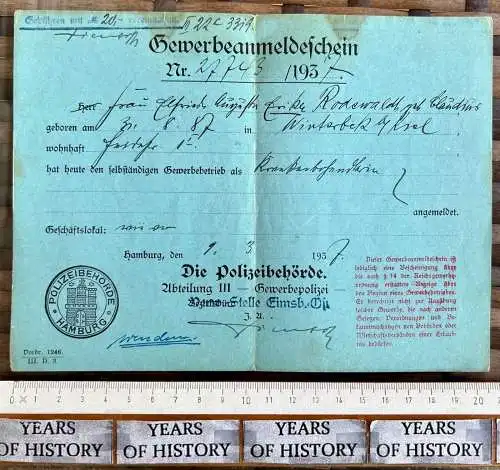 Gebühren mit ℳ 20,-
III 22c 3319
Gewerbeanmeldeschein
Nr. 27743 /1937.
Herr Frau Elfriede Auguste Rodewaldt geb. Claudius
geboren am 31. 8. 87 in Winterbek b/Kiel
wohnhaft
hat heute den selbständigen Gewerbebetrieb als Krankenbehandlerin
angemeldet.
Geschäftslokal: wie vor
Hamburg, den 9. 3. 1937.
Die Polizeibehörde.
Abteilung III — Gewerbepolizei
Stelle Eimsb.
J. A.
wenden.
POLIZEIBEHÖRDE
HAMBURG
Dieser Gewerbeanmeldeschein ist
lediglich eine Bescheinigung über
die nach § 14 der Reichsgewerbe-
ordnung erstattete Anzeige über
den Beginn eines Gewerbebetriebes.
Er berechtigt nicht zur Ausübung
solcher Gewerbe, die nach anderen
Gesetzen, Verordnungen und Be-
kanntmachungen den Behörden oder
Wirtschaftsverbänden einer Erlaubnis
bedürfen.
Vordr. 1246
III. D. 3
1 2 3 4 5 6 7 8 9 10 11 12 13 14 15 16 17 18 19 20
YEARS OF HISTORY
YEARS OF HISTORY
YEARS OF HISTORY
YEARS OF HISTORY